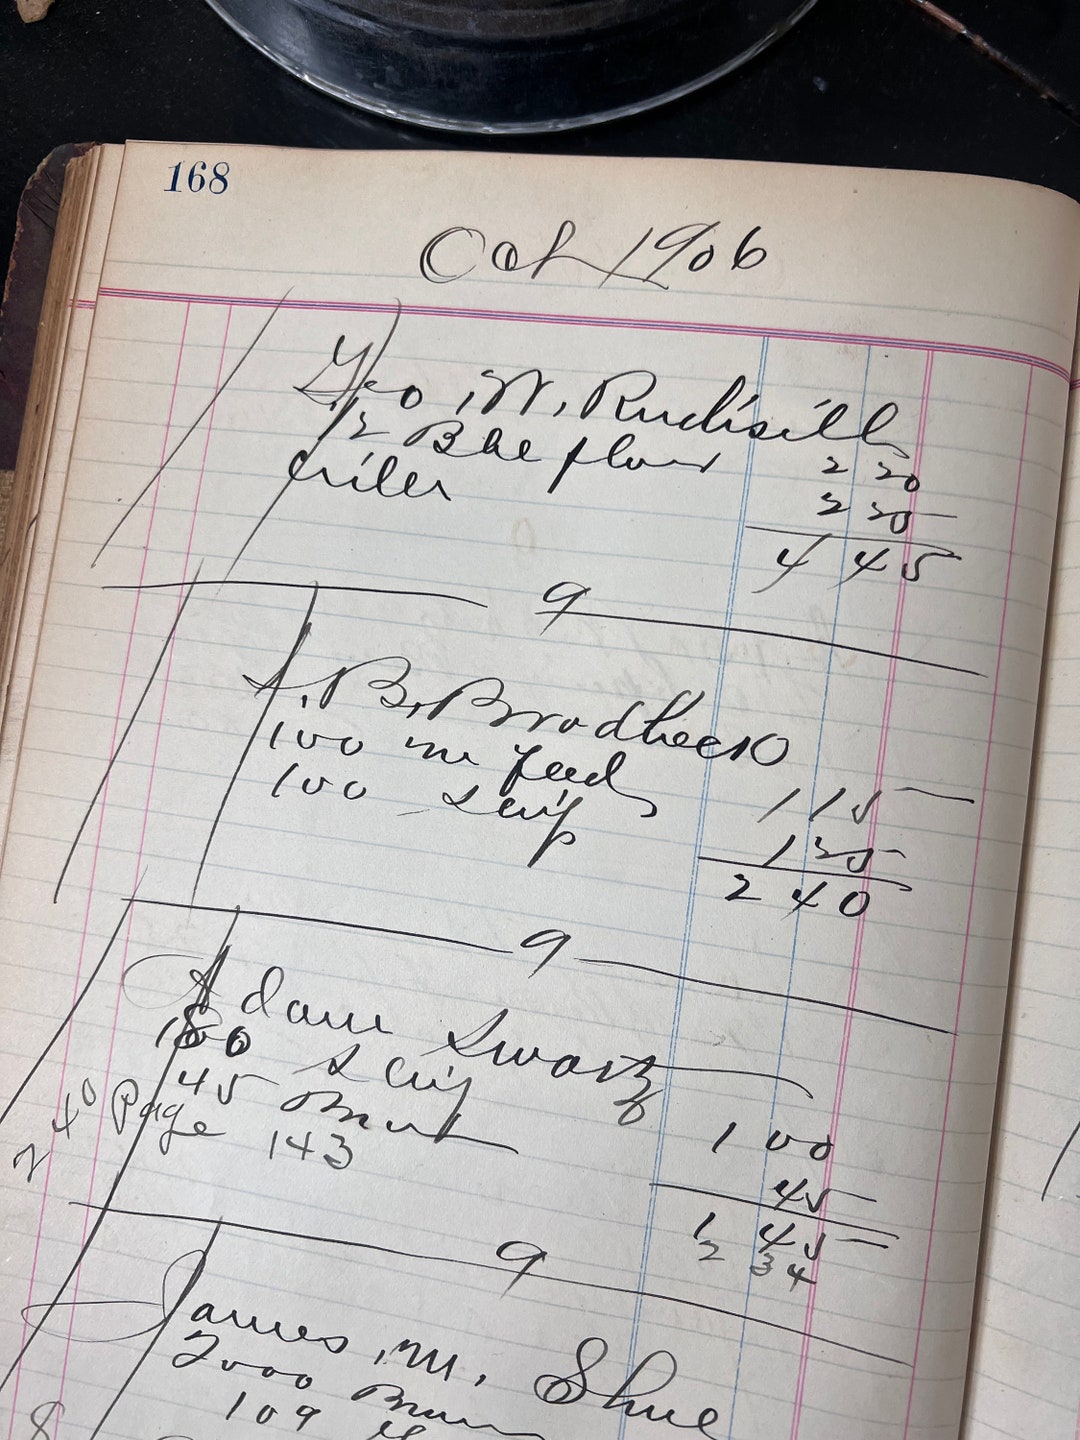 168
Oct 1906
Geo. W. Rudisill
1/2 Bbe flour 2 20
2 25
4 45
9
B. Brodbeck
100 m feed 1 15
100 1 25
2 40
9
Adam Swartz
100 1 00
45 45
Page 143 1 45
240 2 34
9
James M. Shue
2000 Bran
109
8